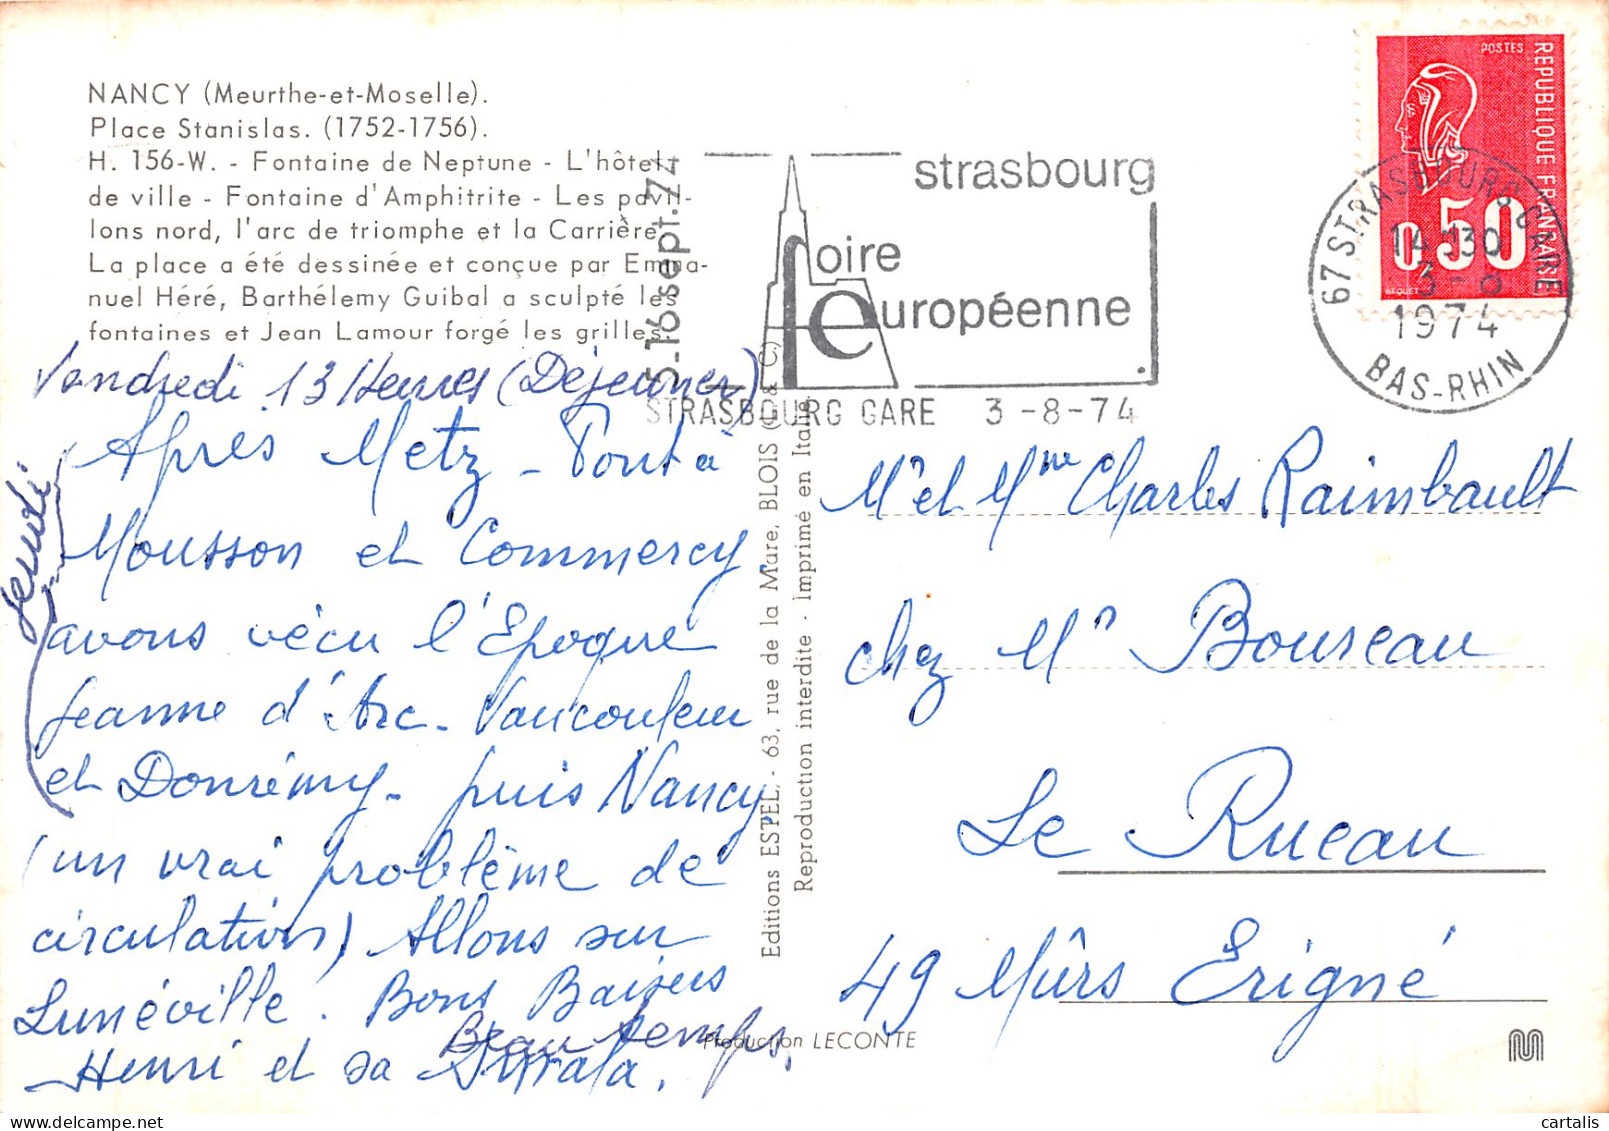 NANCY (Meurthe-et-Moselle).
Place Stanislas. (1752-1756).
H. 156-W. - Fontaine de Neptune - L'hôtel
de ville - Fontaine d'Amphitrite - Les pavil-
lons nord, l'arc de triomphe et la Carrière.
La place a été dessinée et conçue par Emma-
nuel Héré, Barthélemy Guibal a sculpté les
fontaines et Jean Lamour forgé les grilles.
Vendredi 13 Heures (Déjeuner)
Après Metz - Pont à
Mousson et Commercy.
avons vécu l'Epoque
Jeanne d'Arc - Vaucouleur
et Donrémy - puis Nancy.
(un vrai problème de
circulation) Allons sur
Lunéville. Bons Baisers
Beau temps.
Henri et sa
Jeudi
5-16 sept. 74
strasbourg
foire
européenne
STRASBOURG GARE 3-8-74
POSTES
REPUBLIQUE FRANÇAISE
0,50
BEQUET
67 STRASBOURG GARE
14H30
3-8
1974
BAS-RHIN
Editions ESTEL, - 63, rue de la Mare, BLOIS (L. & C.)
Reproduction interdite - Imprimé en Italie.
Mr et Mme Charles Raimbault
chez Mr Boureau
Le Rueau
49 Mûrs Erigné
Production LECONTE
M
cartalis